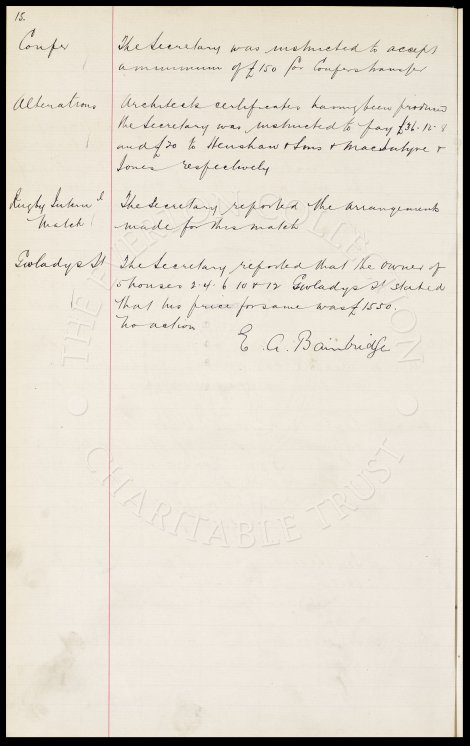 18.
Confer The Secretary was instructed to accept
a minimum of £150 for Confers transfer
Alterations Architects certificates having been produced
the Secretary was instructed to pay £36.12.
and £70 to Henshaw & Sons & MacIntyre &
Jones respectively
Rugby Intern'l The Secretary reported the arrangements
Match made for this match
Gwladys St The Secretary reported that the owner of
5 houses 2. 4. 6 10 & 12 Gwladys St stated
that his price for same was £1550.
No action
E. A. Bainbridge
THE EVERTON COLLECTION
CHARITABLE TRUST